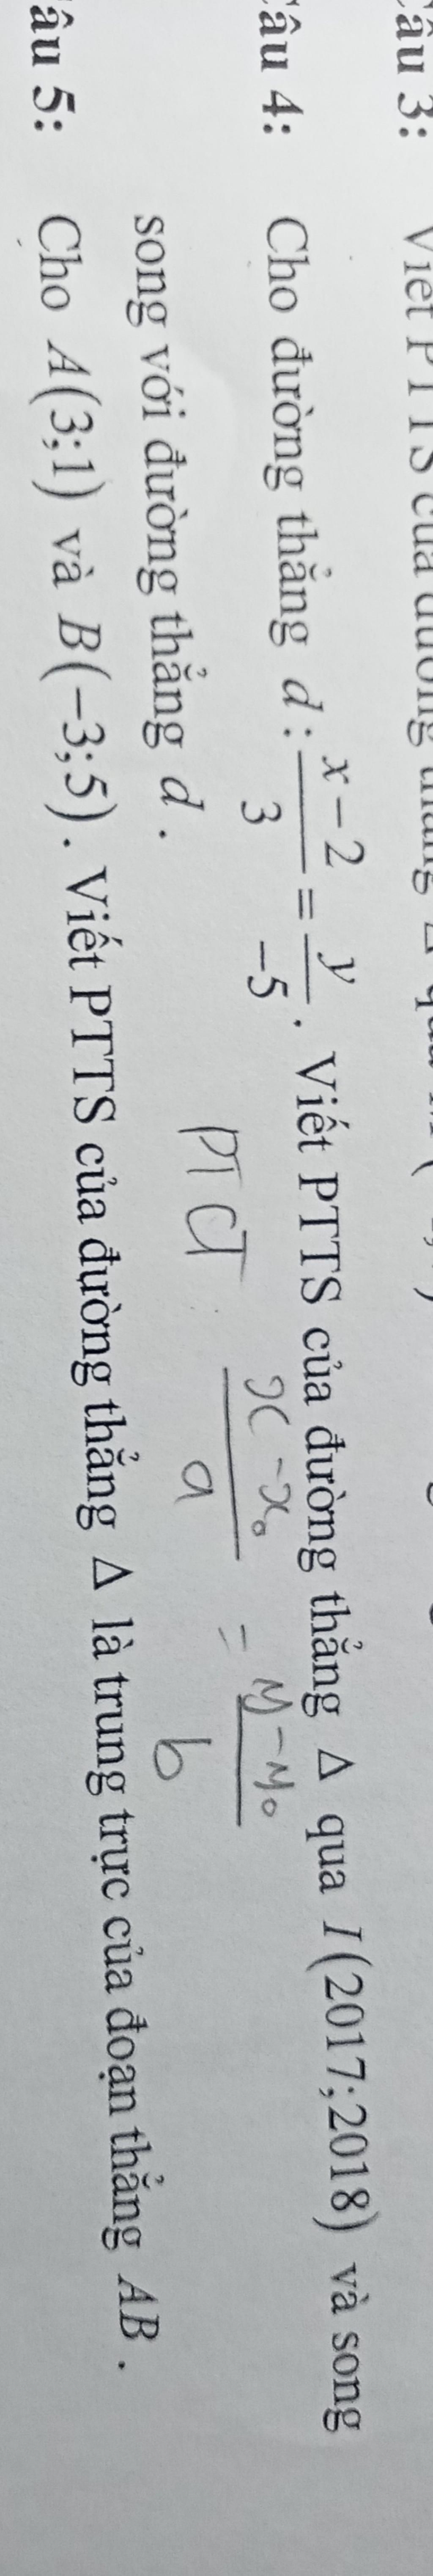 Câu 3: Viết PTTS của đường thẳng Δ qua
Câu 4: Cho đường thẳng d: \frac{x-2}{3} = \frac{y}{-5}. Viết PTTS của đường thẳng Δ qua I(2017;2018) và song
song với đường thẳng d.
PTCT \frac{x-x₀}{a} = \frac{y-y₀}{b}
âu 5: Cho A(3;1) và B(-3;5). Viết PTTS của đường thẳng Δ là trung trực của đoạn thẳng AB.